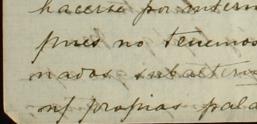 hacerse por interm
pues no tenemos
nados subaltern
propias pala